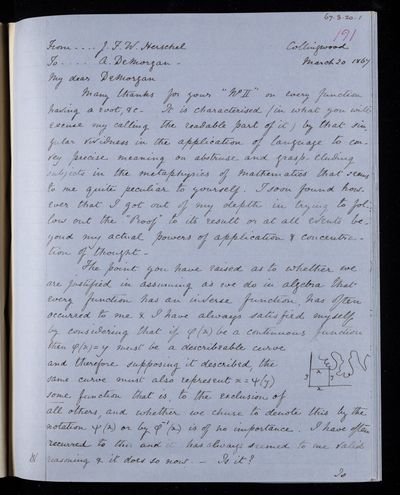 67.3.20.1
191
From .... J. F. W. Herschel Collingwood
To ..... A. DeMorgan - March 20 1867
My dear DeMorgan
Many thanks for your "No II" on every function
having a root, &c - It is characterised (in what you will
excuse my calling the readable part of it) by that sin
gular vividness in the application of language to con-
vey precise meaning on abstruse and grasp-eluding
subjects in the metaphysics of mathematics that seems
to me quite peculiar to yourself. I soon found how-
ever that I got out of my depth in trying to fol-
low out the "Proof" to its result or at all events be-
yond my actual powers of application & concentra-
tion of thought -
The point you have raised as to whether we
are justified in assuming as we do in algebra that
every function has an inverse function, has often
occurred to me & I have always satisfied myself
by considering that if φ(x) be a continuous function
then φ(x)=y must be a describeable curve
and therefore supposing it described, the
same curve must also represent x=ψ(y)
some function that is, to the exclusion of
all others, and whether we chuse to denote this by the
notation ψ(x) or by φ⁻¹(x) is of no importance. I have often
recurred to this and it has always seemed to me valid
reasoning & it does so now. - Is it?
To